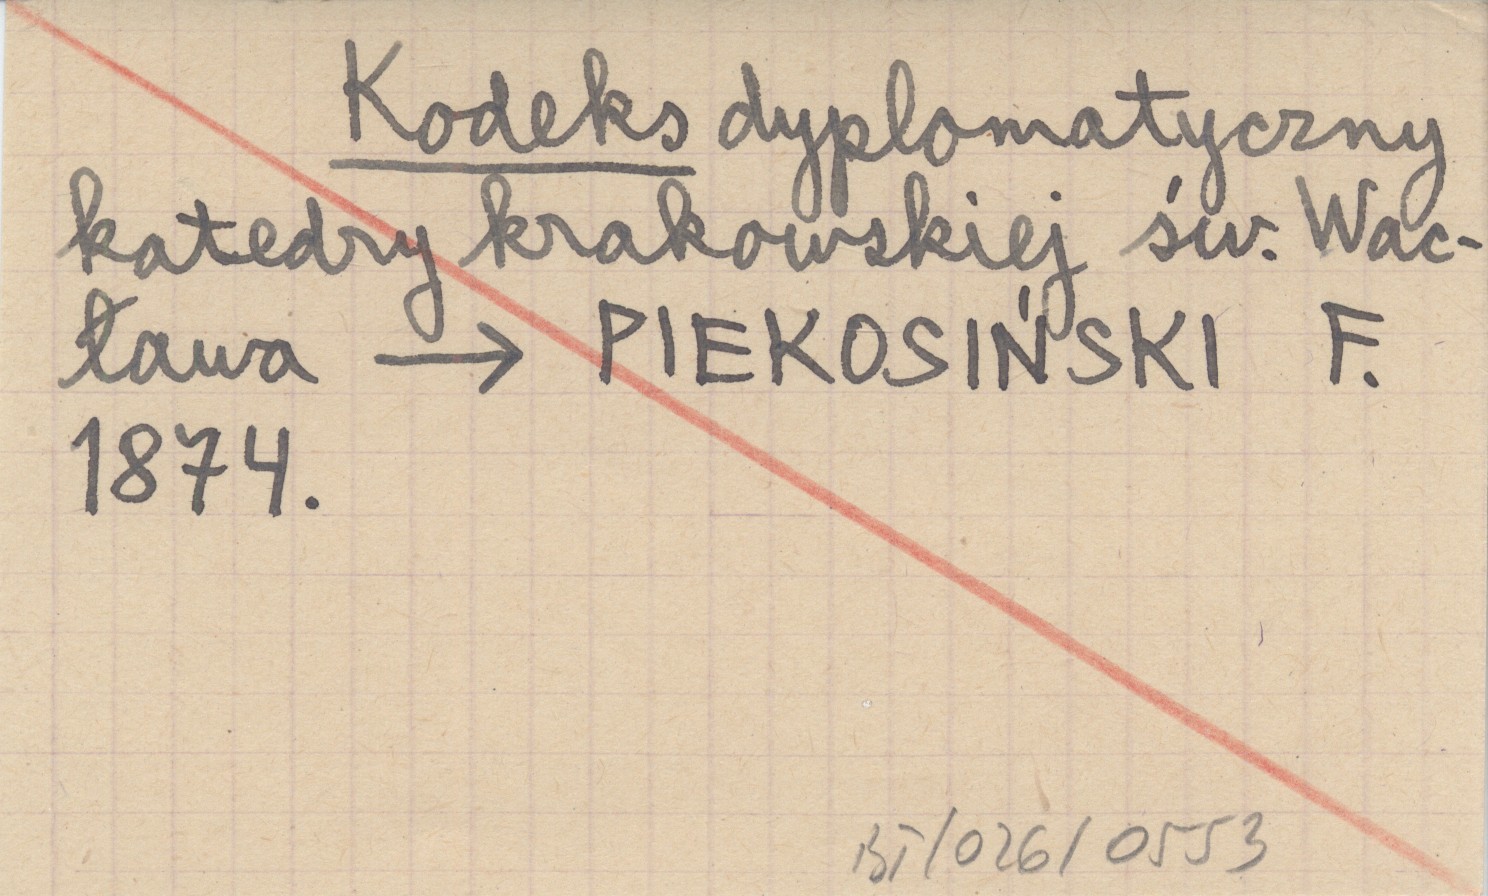 Kodeks dyplomatyczny
katedry krakowskiej św. Wac-
ława → PIEKOSIŃSKI F.
1874.
BT/026/0553